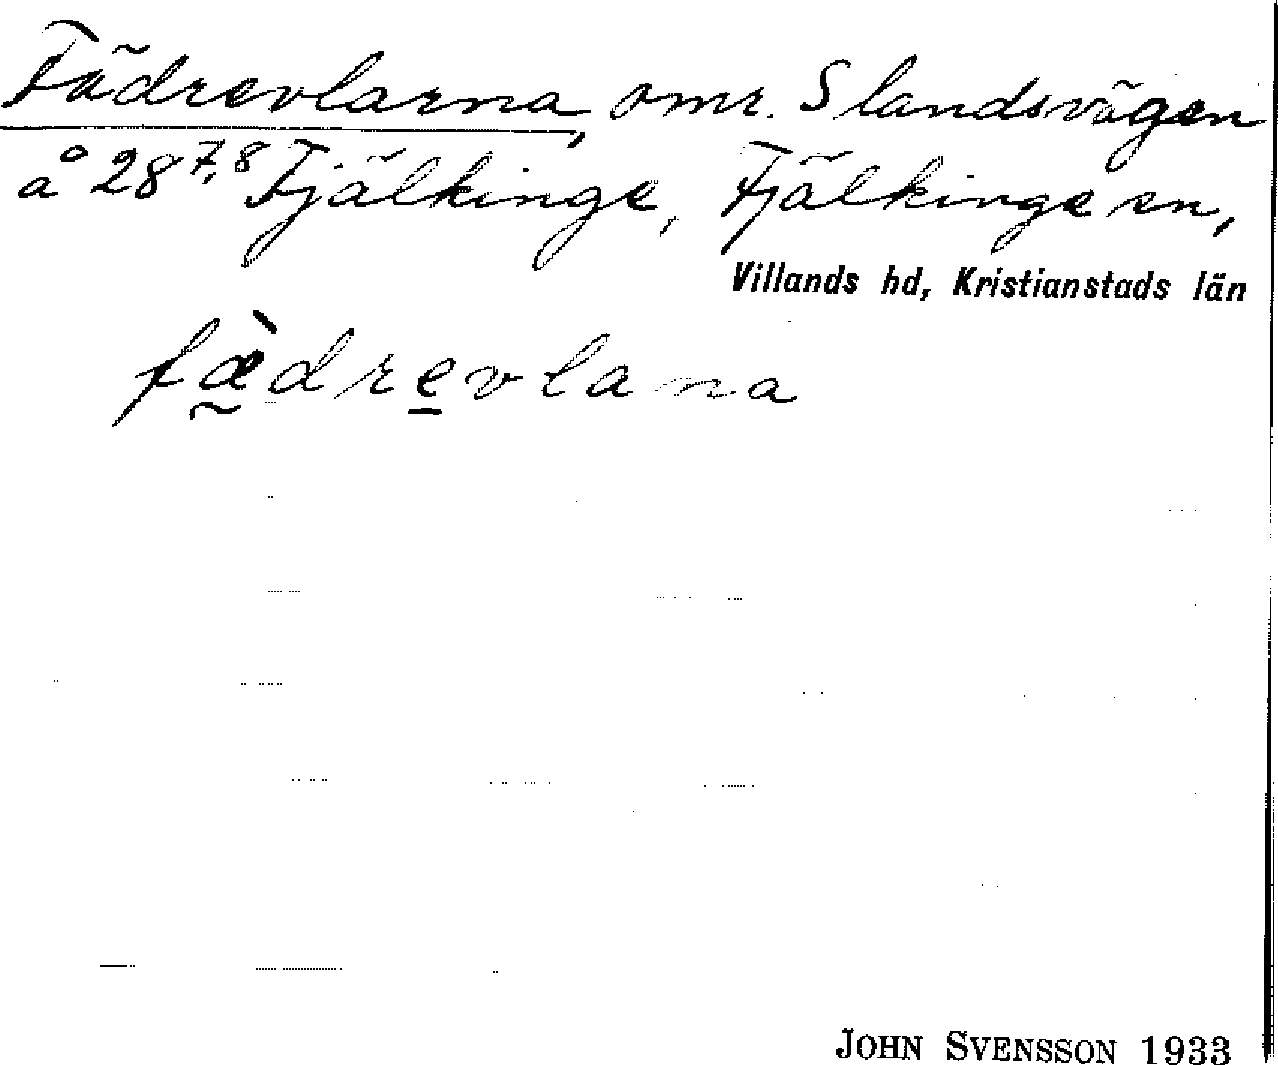 Fädrevlarna, omr. S landsvägen
å 28 7,8 Fjälkinge, Fjälkinge sn,
Villands hd, Kristianstads län
fæ̀drevlana
JOHN SVENSSON 1933